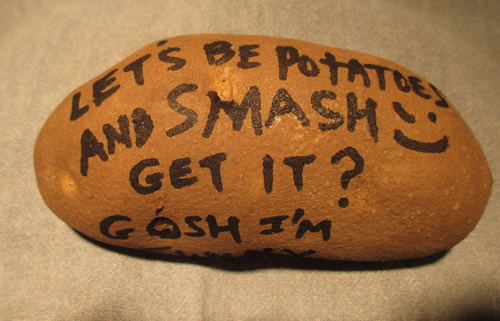 LET'S BE POTATOES
AND SMASH :)
GET IT?
GOSH I'M